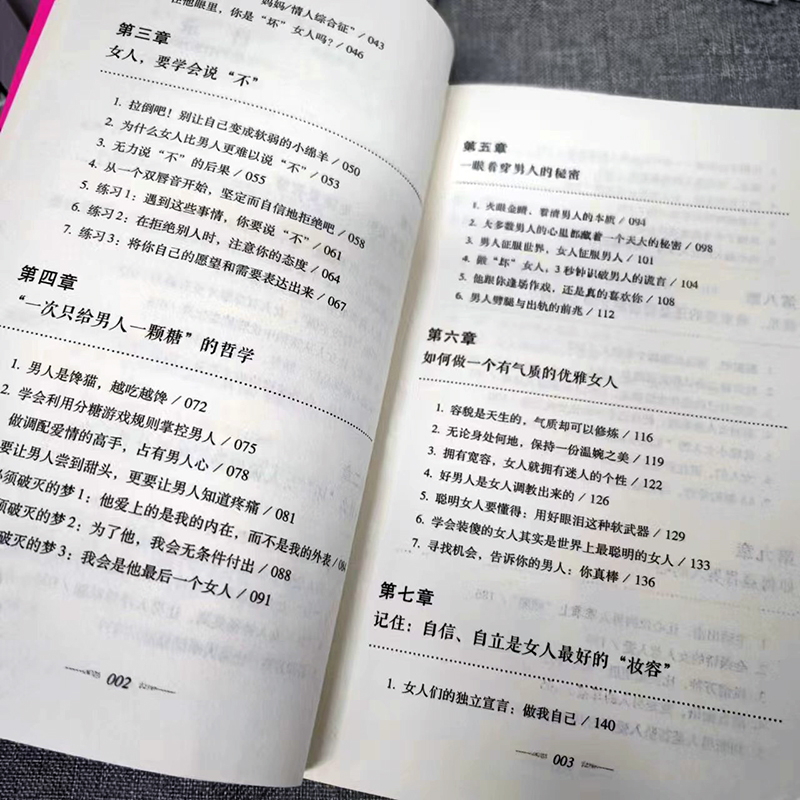 妈妈/情人综合征”/ 043
在他眼里，你是“坏”女人吗？/ 046
第三章
女人，要学会说“不”
1. 拉倒吧！别让自己变成软弱的小绵羊 / 050
2. 为什么女人比男人更难以说“不”/ 053
3. 无力说“不”的后果 / 055
4. 从一个双唇音开始，坚定而自信地拒绝吧 / 058
5. 练习1：遇到这些事情，你要说“不”/ 061
6. 练习2：在拒绝别人时，注意你的态度 / 064
7. 练习3：将你自己的愿望和需要表达出来 / 067
第四章
“一次只给男人一颗糖”的哲学
1. 男人是馋猫，越吃越馋 / 072
2. 学会利用分糖游戏规则掌控男人 / 075
做调配爱情的高手，占有男人心 / 078
要让男人尝到甜头，更要让男人知道疼痛 / 081
必须破灭的梦1：他爱上的是我的内在，而不是我的外表 / 084
须破灭的梦2：为了他，我会无条件付出 / 088
破灭的梦3：我会是他最后一个女人 / 091
002
第五章
一眼看穿男人的秘密
1. 火眼金睛，看清男人的本质 / 094
2. 大多数男人的心里都藏着一个天大的秘密 / 098
3. 男人征服世界，女人征服男人 / 101
4. 做“坏”女人，3秒钟识破男人的谎言 / 104
5. 他跟你逢场作戏，还是真的喜欢你 / 108
6. 男人劈腿与出轨的前兆 / 112
第六章
如何做一个有气质的优雅女人
1. 容貌是天生的，气质却可以修炼 / 116
2. 无论身处何地，保持一份温婉之美 / 119
3. 拥有宽容，女人就拥有迷人的个性 / 122
4. 好男人是女人调教出来的 / 126
5. 聪明女人要懂得：用好眼泪这种软武器 / 129
6. 学会装傻的女人其实是世界上最聪明的女人 / 133
7. 寻找机会，告诉你的男人：你真棒 / 136
第七章
记住：自信、自立是女人最好的“妆容”
1. 女人们的独立宣言：做我自己 / 140
003